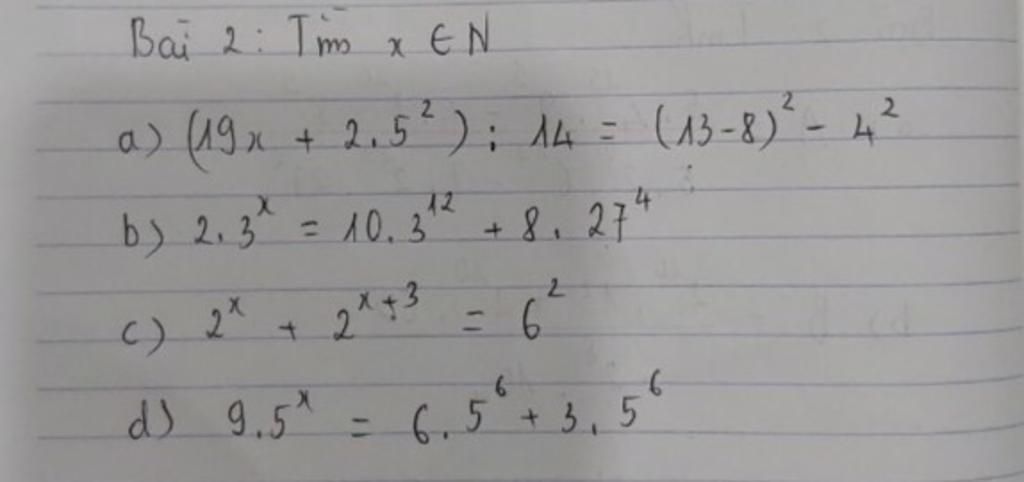 Bài 2: Tìm x ∈ N
a) (19x + 2.5²) : 14 = (13-8)² - 4²
b) 2.3ˣ = 10.3¹² + 8.27⁴
c) 2ˣ + 2ˣ⁺³ = 6²
d) 9.5ˣ = 6.5⁶ + 3.5⁶